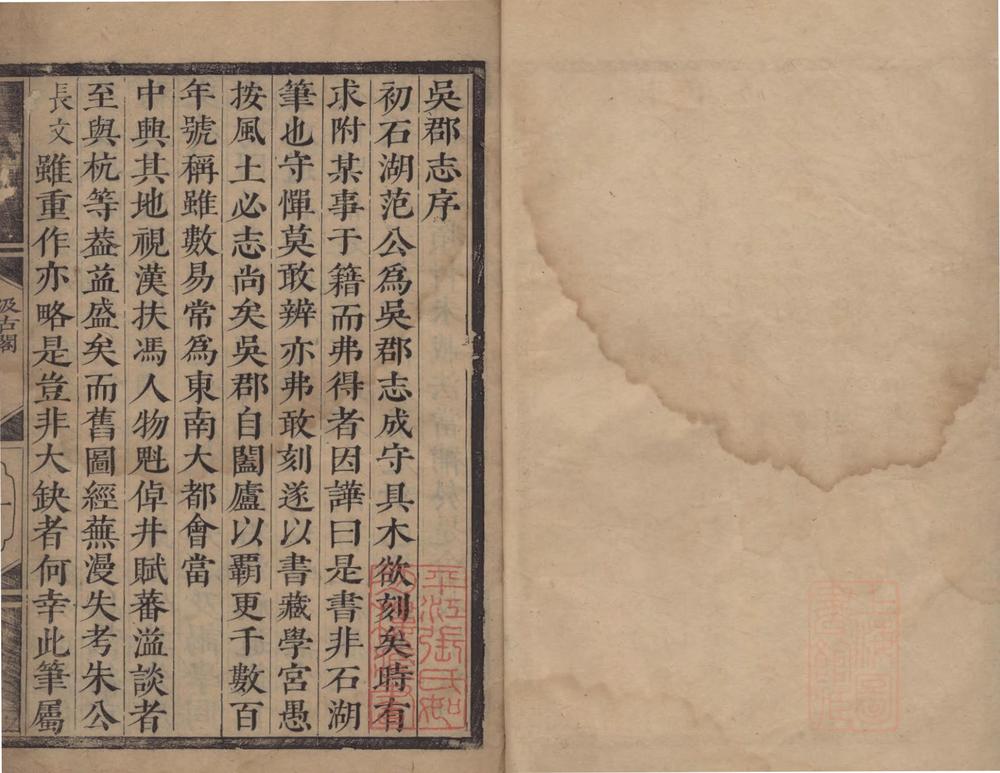 吳郡志序
初石湖范公爲吳郡志成守具木欲刻矣時有
求附某事于籍而弗得者因譁曰是書非石湖
筆也守憚莫敢辨亦弗敢刻遂以書藏學宮愚
按風土必志尚矣吳郡自闔廬以覇更千數百
年號稱雖數易常爲東南大都會當
中興其地視漢扶馮人物魁倬井賦蕃溢談者
至與杭等葢益盛矣而舊圖經蕪漫失考朱公
長文雖重作亦略是豈非大缺者何幸此筆屬
汲古閣
一